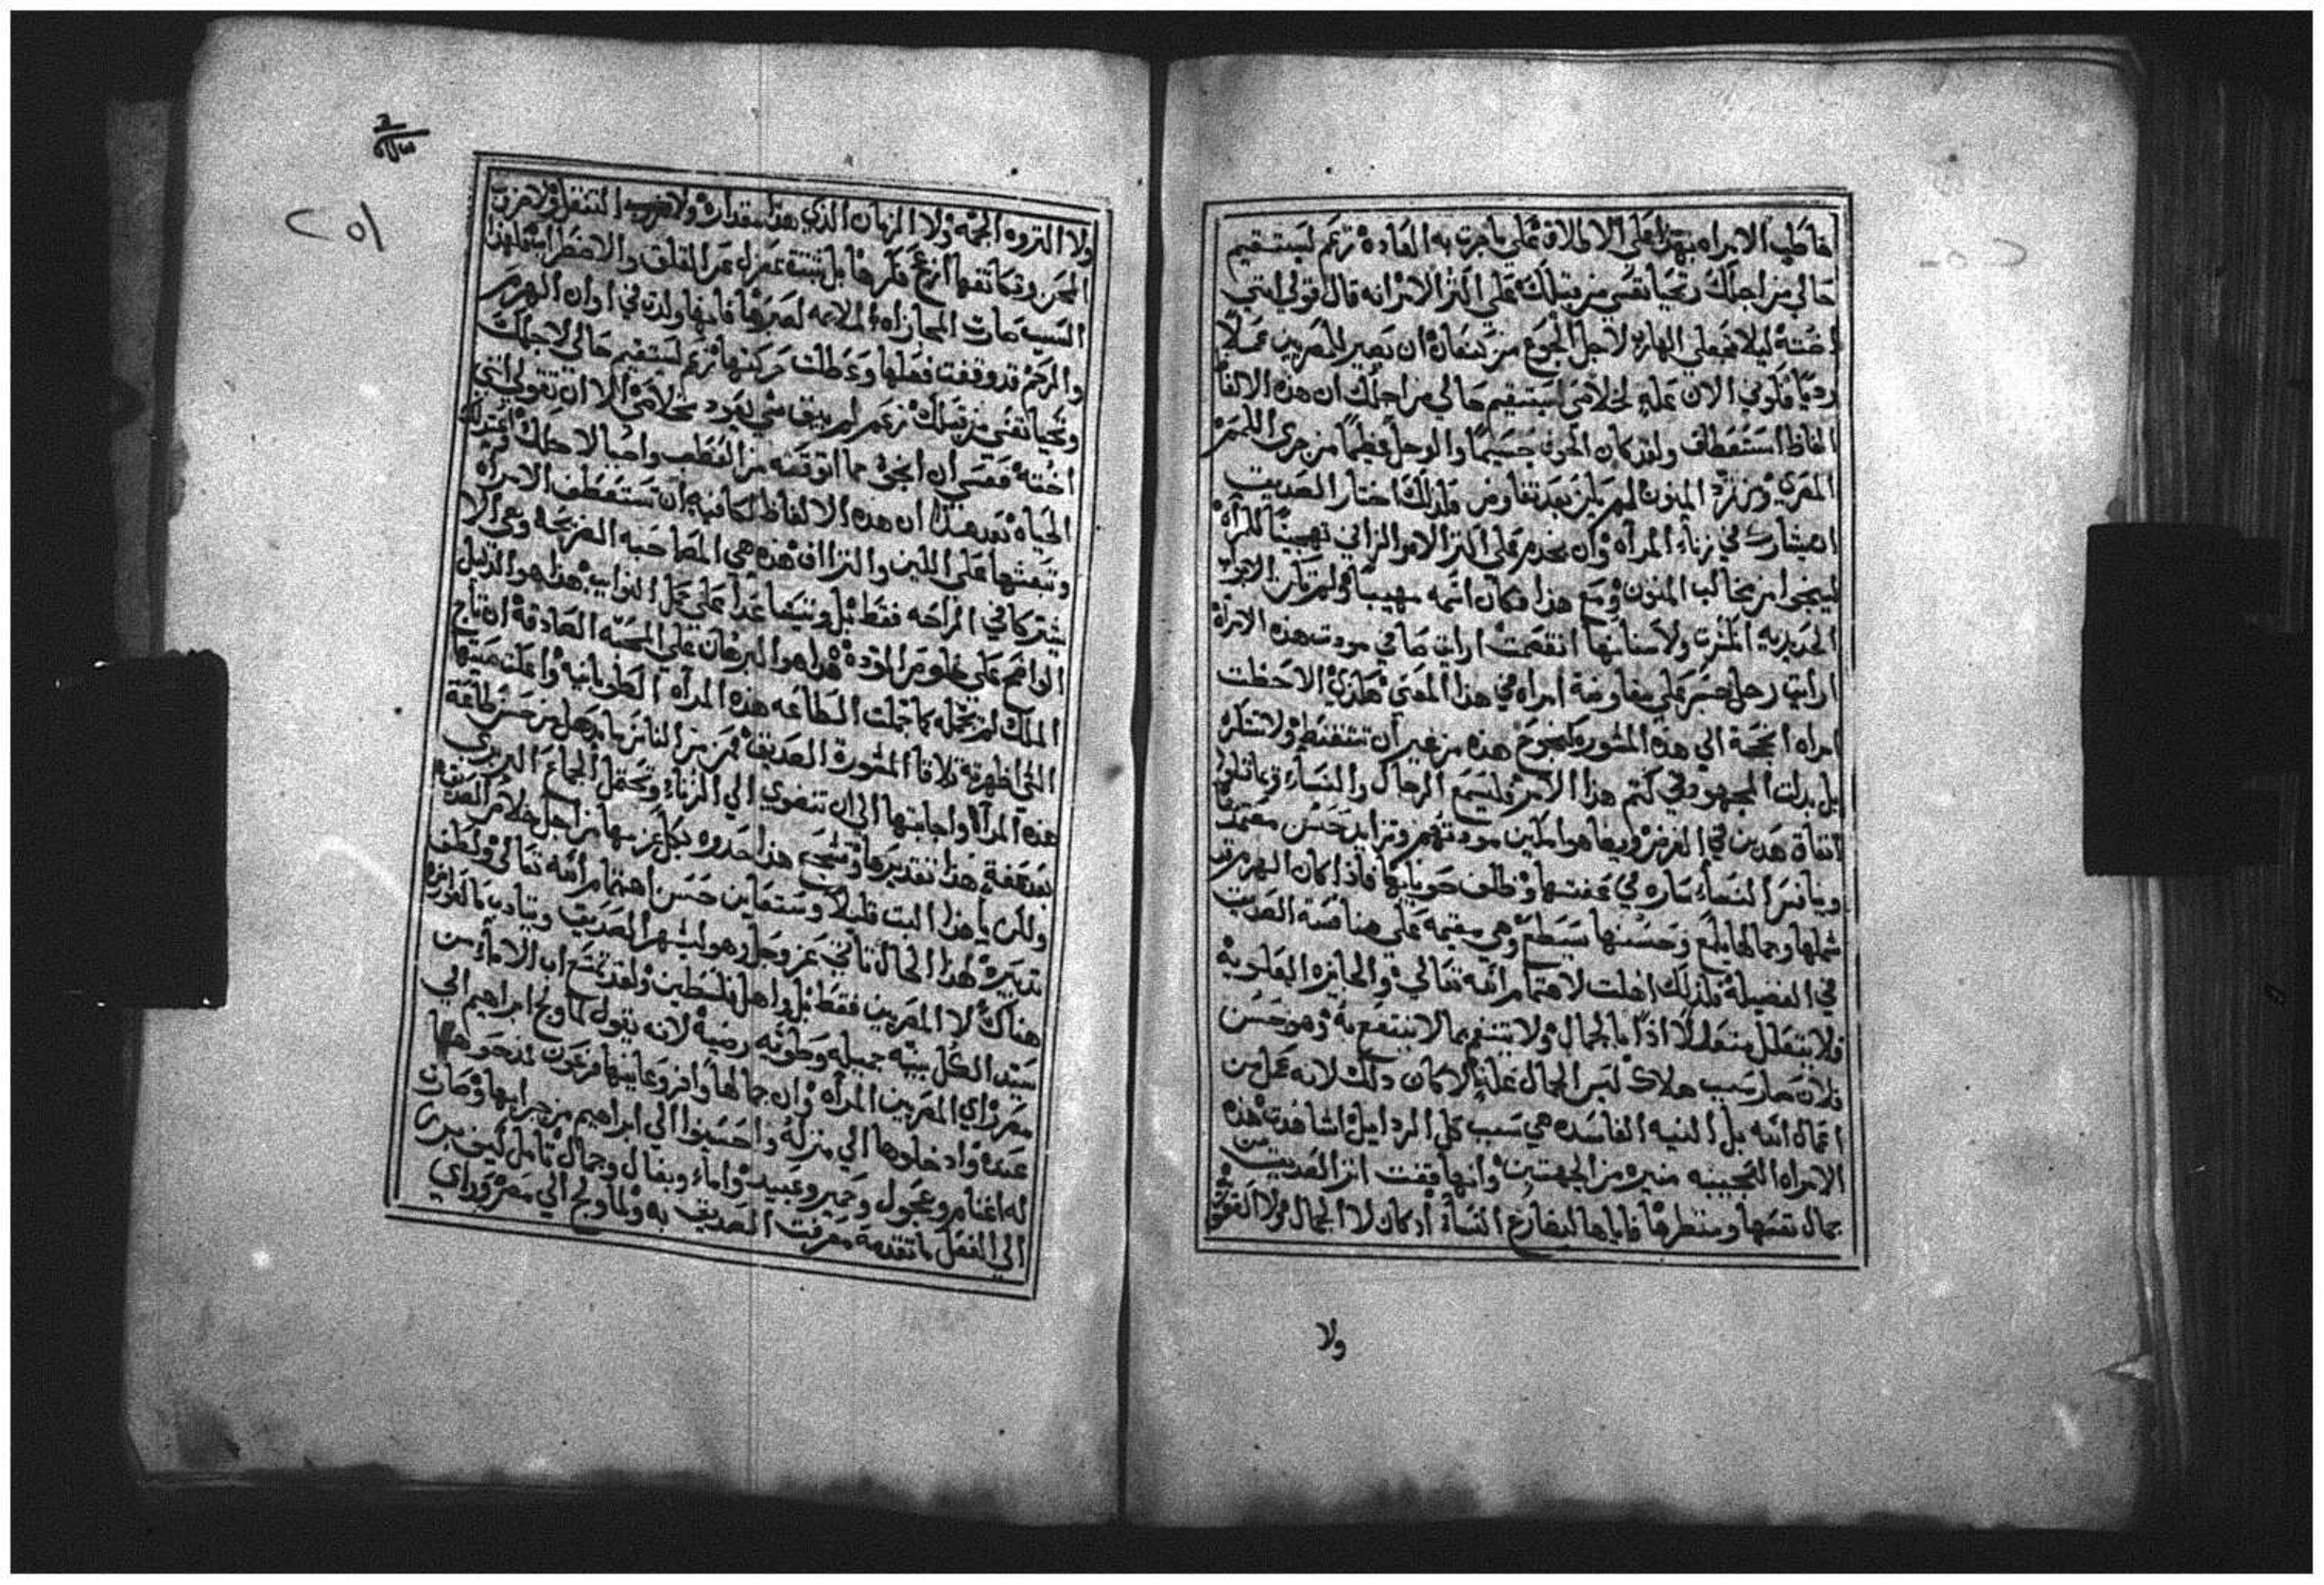 اخاطب الامراه بهذا على الاطلاق على ما جرت به العاده زعم ليستقيم
حالي من اجلك وتحيا نفسي من قبلك على اكثر الامر انه قال قولي انني
اخته ليلا تجعلي الهارب لاجل الجوع من كنعان ان يصير للمصريين عملا
رديا فكوني الان علة لخلاصي ليستقيم حالي من اجلك ان هذه الالفاظ
الفاظ استعطاف ولقد كان الخوف جسيما والوحل عظيما من جرى
المصري ومن المنون لم يكن بعد فلذلك اختار الصديق
ان يشارك في زناء المرأه وان يخدم على اكثر الامر الزاني تهجينا للمرأه
لينجوا من مخالب المنون ومع هذا فكان اسمه مهيبا ولم تكن الابواب
الحديديه انكسرت ولا اسنانها انقصمت ارايت صافي مودت هذه الامراة
ارايت رجل جسر على مفاوضة امراه في هذا المعنى هكذي الاحظت
امراه انجحة الي هذه المشوره كنجوح هذه من غير أن تشفنط ولا تتنكر
بل بدلت المجهود في كتم هذا الامر فليسمع الرجال والنساء
اتفاق هدين في الغرض ويضاهوا مكين مودتهم وتزايد حسن معتمدها
وينافس النساء ساره في عفتها وظلف حوبايها فاذا كان الهرم قد
شملها وجمالها يلمع وحسنها يسطع وهي مقيمه على منافسة الصديق
في الفضيلة فلذلك اهلت لاهتمام الله تعالى والجايزه العلوية
فلا يتعلل متعللا اذا ما بالجمال ولا يتنعم بما لا ينتفع به وهو حسن
فلان صار سبب هلاك ليس الجمال علة لا كان ذلك لانه عمل من
اعمال الله بل النيه الفاسده هي سبب كل الردايل اشاهدت هذه
الامراه العجيبه منيره من الجهتين وانها قفت اثر الصديق من
جمال نفسها ومنظرها فاياها ليضارع النساء اذ كان لا الجمال ولا العقوق
ولا
٢٥١
ولا التروه الجمه ولا الزمان الذي هذا مقداره ولا التنقل ولا ضروب
المحن وتكاثفها ازعج فكرها بل ثبتت بمعزل عن القلق والاضطراب فلهذا
السبب صارت المجازاه الملايمه لصبرها فانها ولدت في اوان الهرم
والرحم قد وقفت فعلها وعطلت حركتها زعم ليستقيم حالي لاجلك
وتحيا نفسي من قبلك زعم لم يبق شي يعود بخلاصي الا ان تقولي انني
اخته فعسى ان انجو مما اتوقعه من العطب واحيا لاجلك
الحياه بعد هذا ان هذه الالفاظ لكافيه ان تستعطف الامراه
وتبعثها على اللين والتزااف هذه هي المصاحبه الصريحه وهي الا
يشتركا في الراحه فقط بل ويتبقا غدا على عمل النوايب هذا هو الدليل
الواضح على خلوص المودة هذا هو البرهان على المحبه الصادقة ان تاج
الملك لم يجمله كما جملت السطاعه هذه المرأه الطوبانيه واعلت همتها
التي اظهرتها تلاقا المشورة الصديق فمن من الناس ما يذهل من حسن طاعة
هذه المرأه واجابتها الى ان تنضوي الي الزناء وتحتمل الجماع البربري
بعد عفة هذا تقديرها هذا حدوه بكل عزمها من اجل خلاص الصديق
ولكن يا هذا اثبت قليلا وستعاين حسن اهتمام الله تعالى ولطف
تدبيره لهذا الحال تاني عز وجل وهو ليشهر الصديق ويتادب بالفوايد
هناك لا المصريين فقط بل واهل فلسطين ولقد سمع اب الاماء من
سيد الكل بنيه جميله وطويه رضية لانه يقول لما ولج ابراهيم الي
مصر راي المصريين المراه وان جمالها وافر وعاينها فرعون فمدحوها
عنده وادخلوها الي منزله واحسنوا الي ابراهيم من جرايها وصارت
له اغنام وعجول وحمير وعبيد واماء وبغال وجمال تامل كيف جرى
الي الفعل ما تقدمة معرفت الصديق به ولما ولج الي مصر وراي